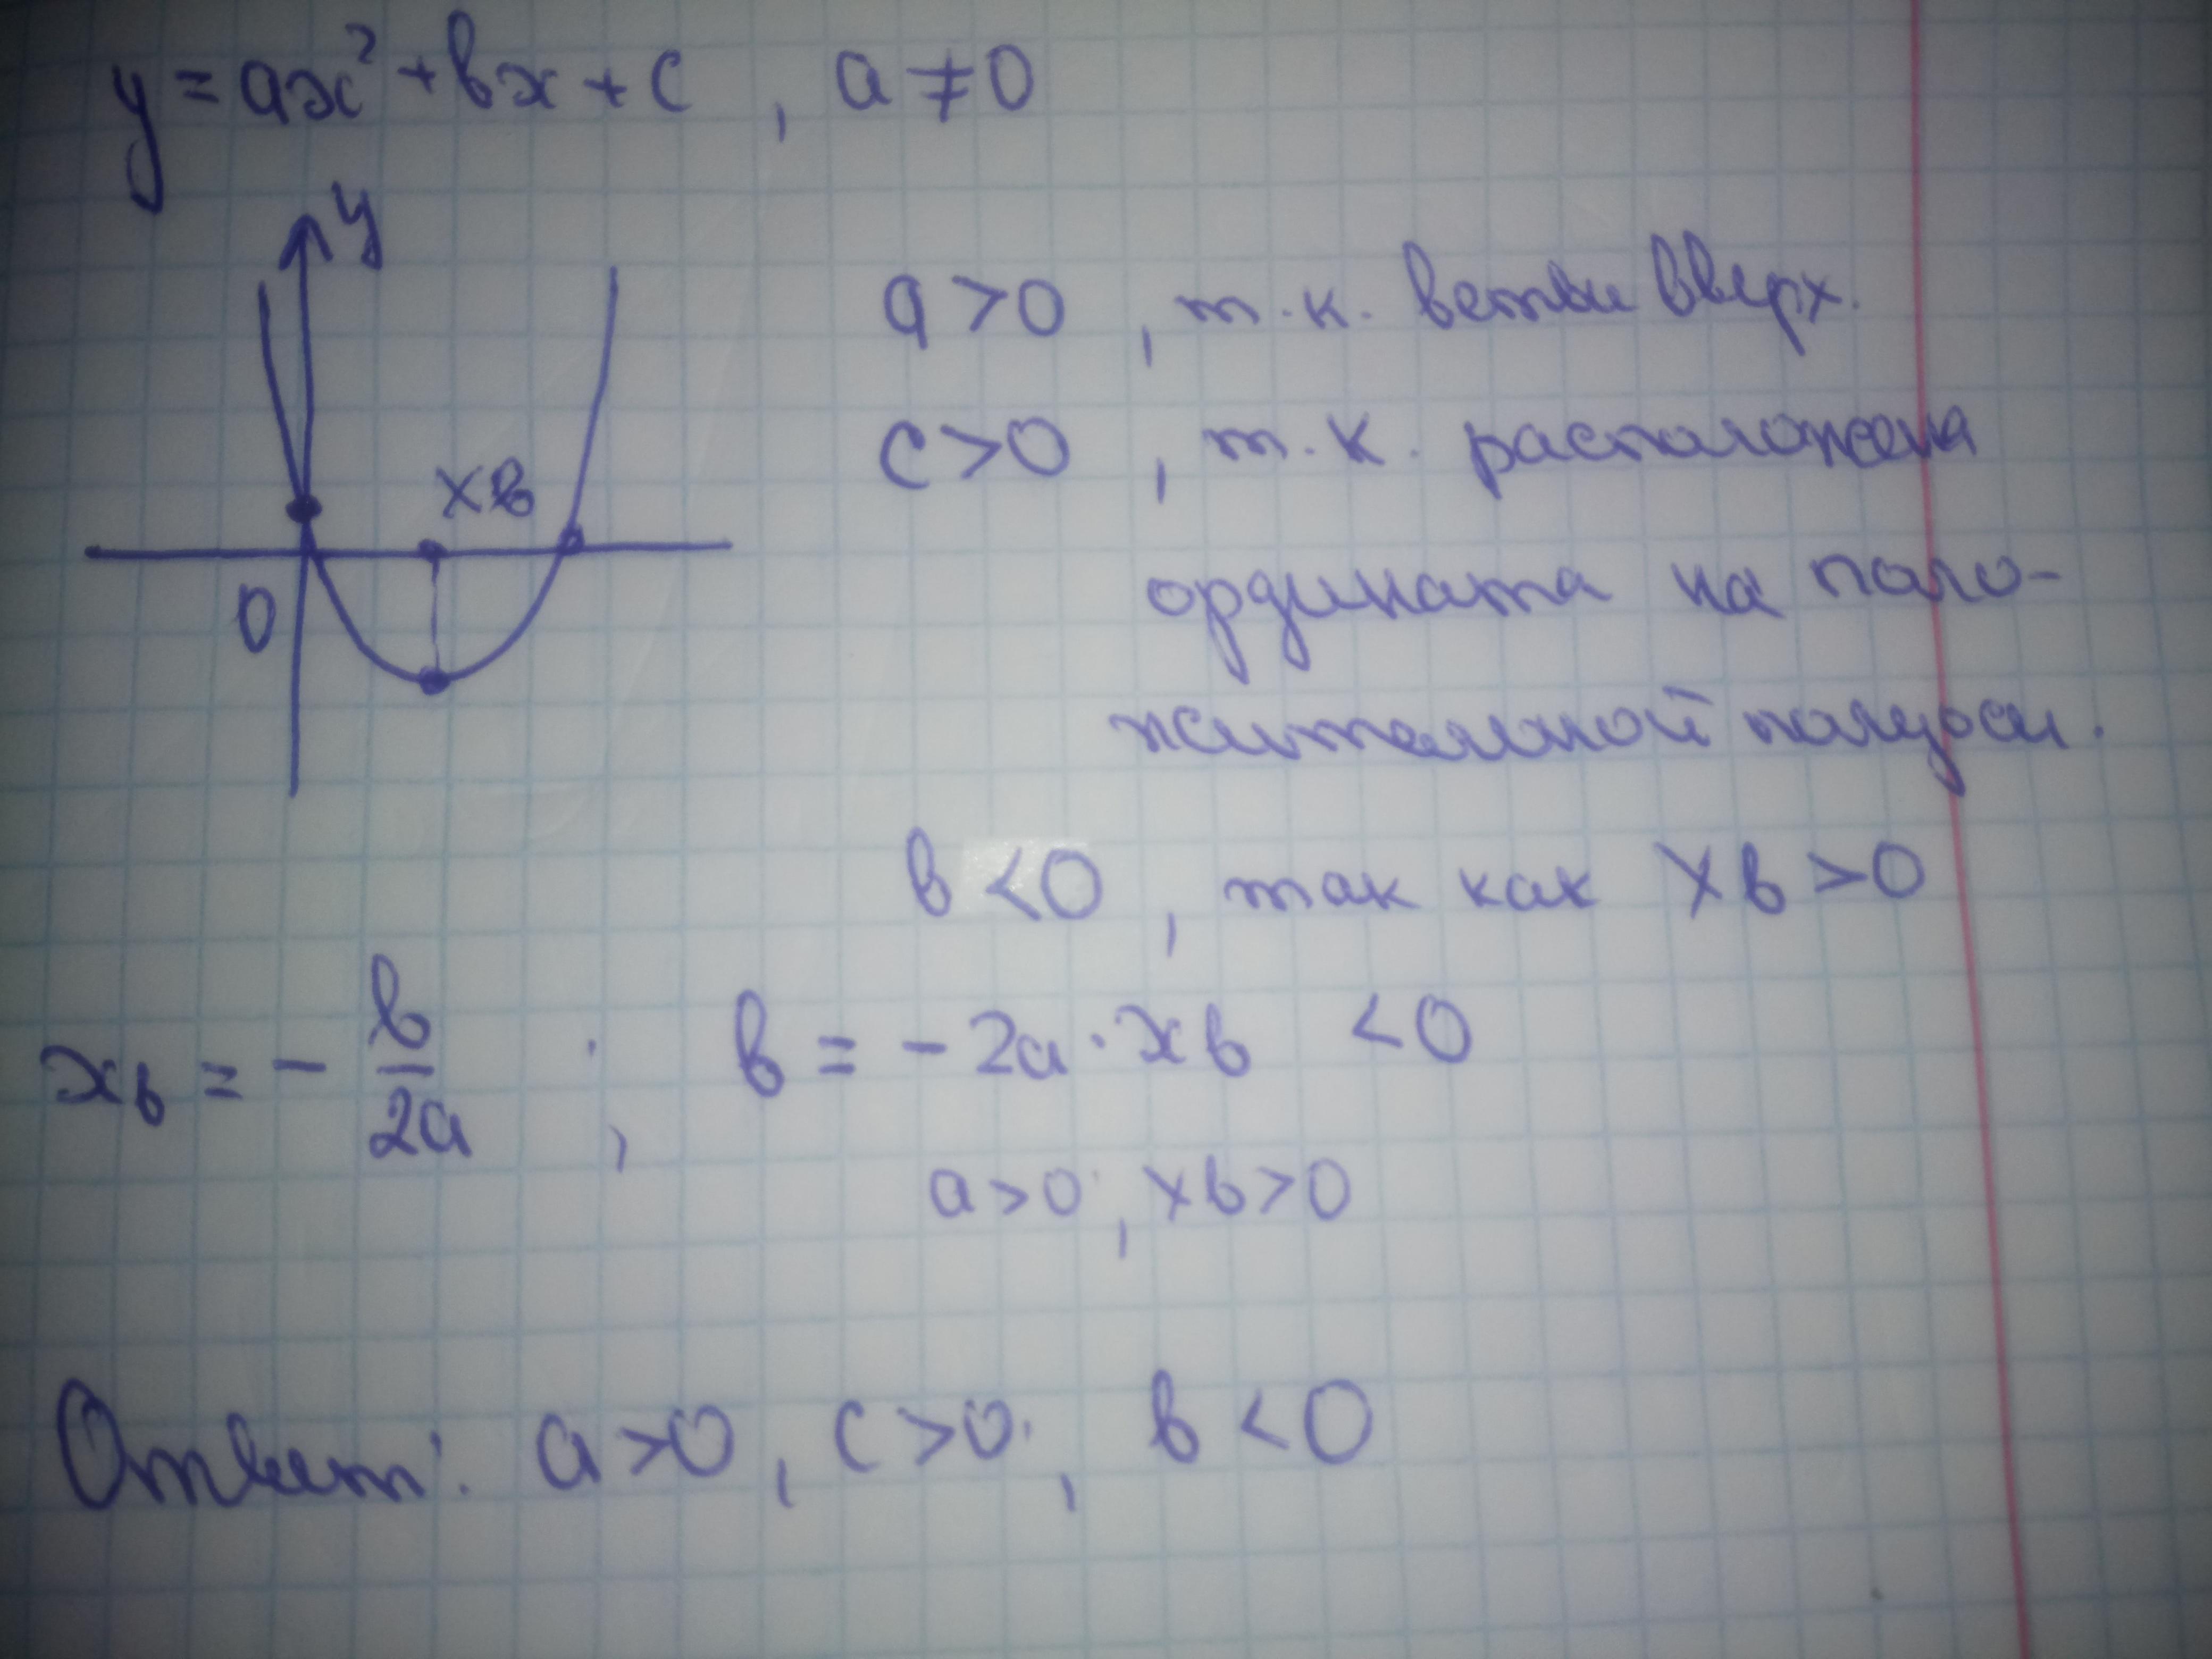 y = ax² + bx + c , a ≠ 0
y
xв
0
a > 0 , т.к. ветви вверх.
c > 0 , т.к. расположена
ордината на поло-
жительной полуоси.
b < 0 , так как xв > 0
xв = - b/2a ; b = - 2a · xв < 0
a > 0 , xв > 0
Ответ: a > 0 , c > 0 , b < 0